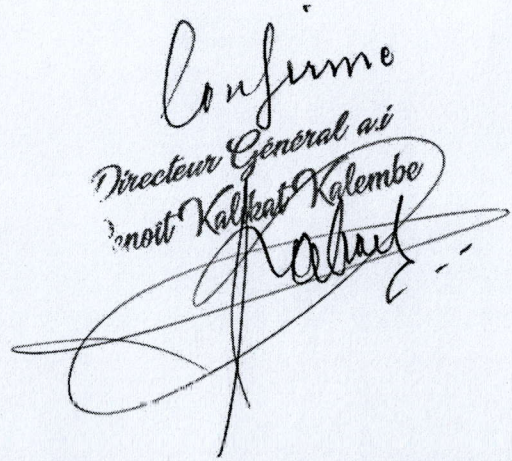 Confirmé
Directeur Général a.i
Benoît Kalekat Kalembe